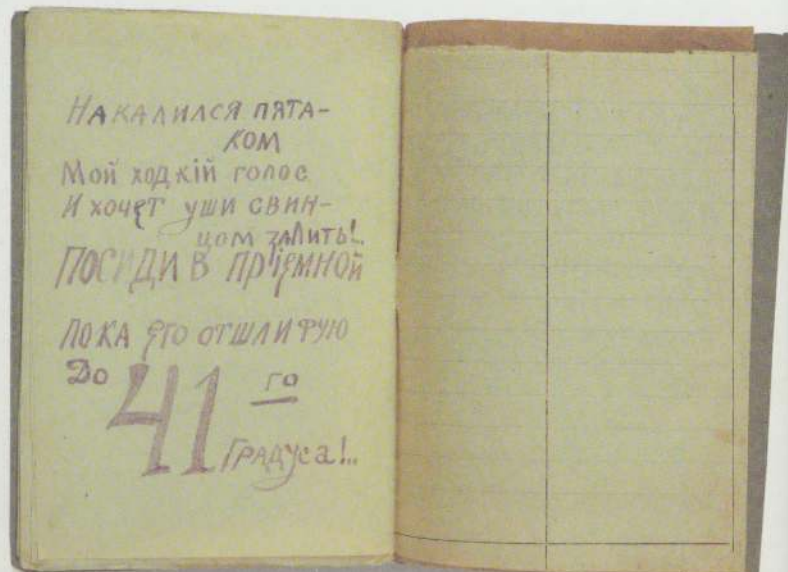 Накалился пята-
ком
Мой ходкій голос
И хочет уши свин-
цом залить!..
ПОСИДИ В ПРІЕМНОЙ
ПОКА ЕГО ОТШЛИФУЮ
До 41 го
Градуса!..